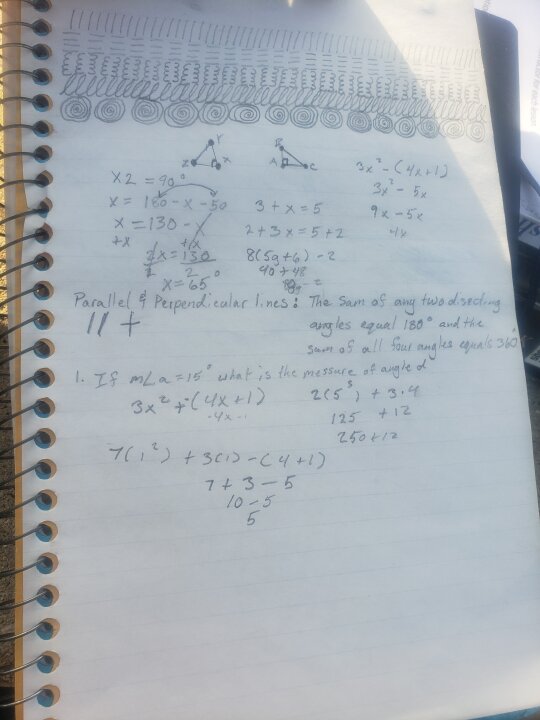 Y
Z X
B
A C
x2 = 90°
x = 180 - x - 50
x = 130 - x
+x +x
2x = 130
2 2
x = 65°
3 + x = 5
2 + 3x = 5 + 2
8(5g + 6) - 2
40 + 48
=
3x² - (4x + 1)
3x² - 5x
9x - 5x
4x
Parallel & Perpendicular lines: The sum of any two disecting
angles equal 180° and the
sum of all four angles equals 360°
|| +
1. If m∠a = 15° what is the messure of angle d
3x² + -(4x + 1)
-4x -1
2(5³) + 3·4
125 + 12
250 + 12
7(1²) + 3(1) - (4 + 1)
7 + 3 - 5
10 - 5
5